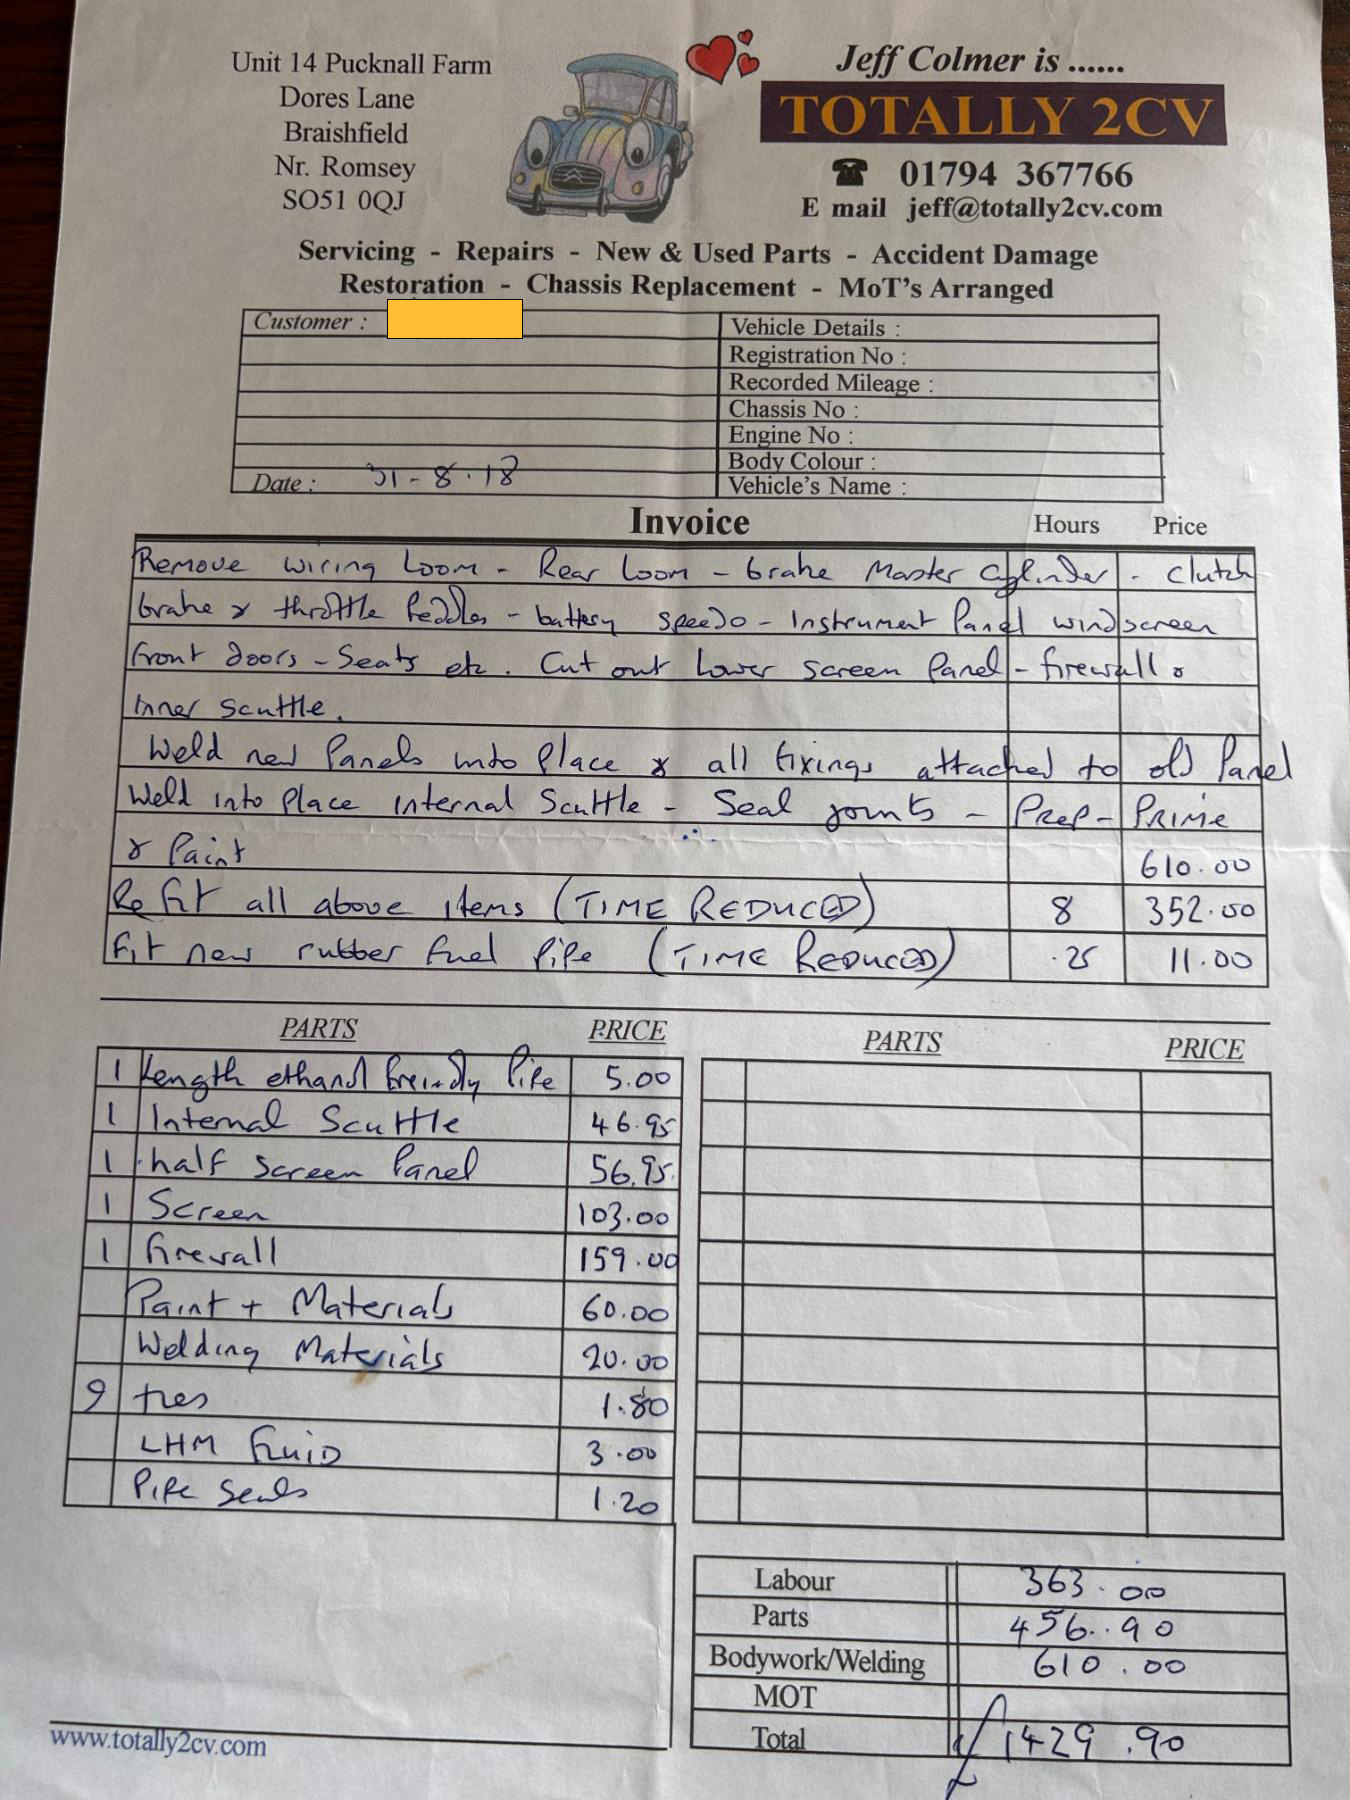 Unit 14 Pucknall Farm
Dores Lane
Braishfield
Nr. Romsey
SO51 0QJ
Jeff Colmer is ......
TOTALLY 2CV
☎ 01794 367766
E mail jeff@totally2cv.com
Servicing - Repairs - New & Used Parts - Accident Damage
Restoration - Chassis Replacement - MoT's Arranged
Customer :
Date : 31-8.18
Vehicle Details :
Registration No :
Recorded Mileage :
Chassis No :
Engine No :
Body Colour :
Vehicle's Name :
Invoice Hours Price
Remove wiring Loom - Rear Loom - brake Master Cylinder - Clutch
brake & throttle Peddles - battery speedo - Instrument Panel windscreen
front doors - Seats etc. Cut out Lower screen Panel - firewall &
inner scuttle.
Weld new Panels into Place & all fixings attached to old Panel
Weld into Place internal Scuttle - Seal joints - PREP - PRIME
& Paint 610.00
Refit all above items (TIME REDUCED) 8 352.00
Fit new rubber fuel Pipe (TIME REDUCED) .25 11.00
PARTS PRICE
1 Length ethanol freindly Pipe 5.00
1 Internal Scuttle 46.95
1 half Screen Panel 56.95
1 Screen 103.00
1 firewall 159.00
Paint + Materials 60.00
Welding Materials 20.00
9 ties 1.80
LHM FLUID 3.00
Pipe Seals 1.20
PARTS PRICE
Labour 363.00
Parts 456.90
Bodywork/Welding 610.00
MOT
Total £1429.90
www.totally2cv.com